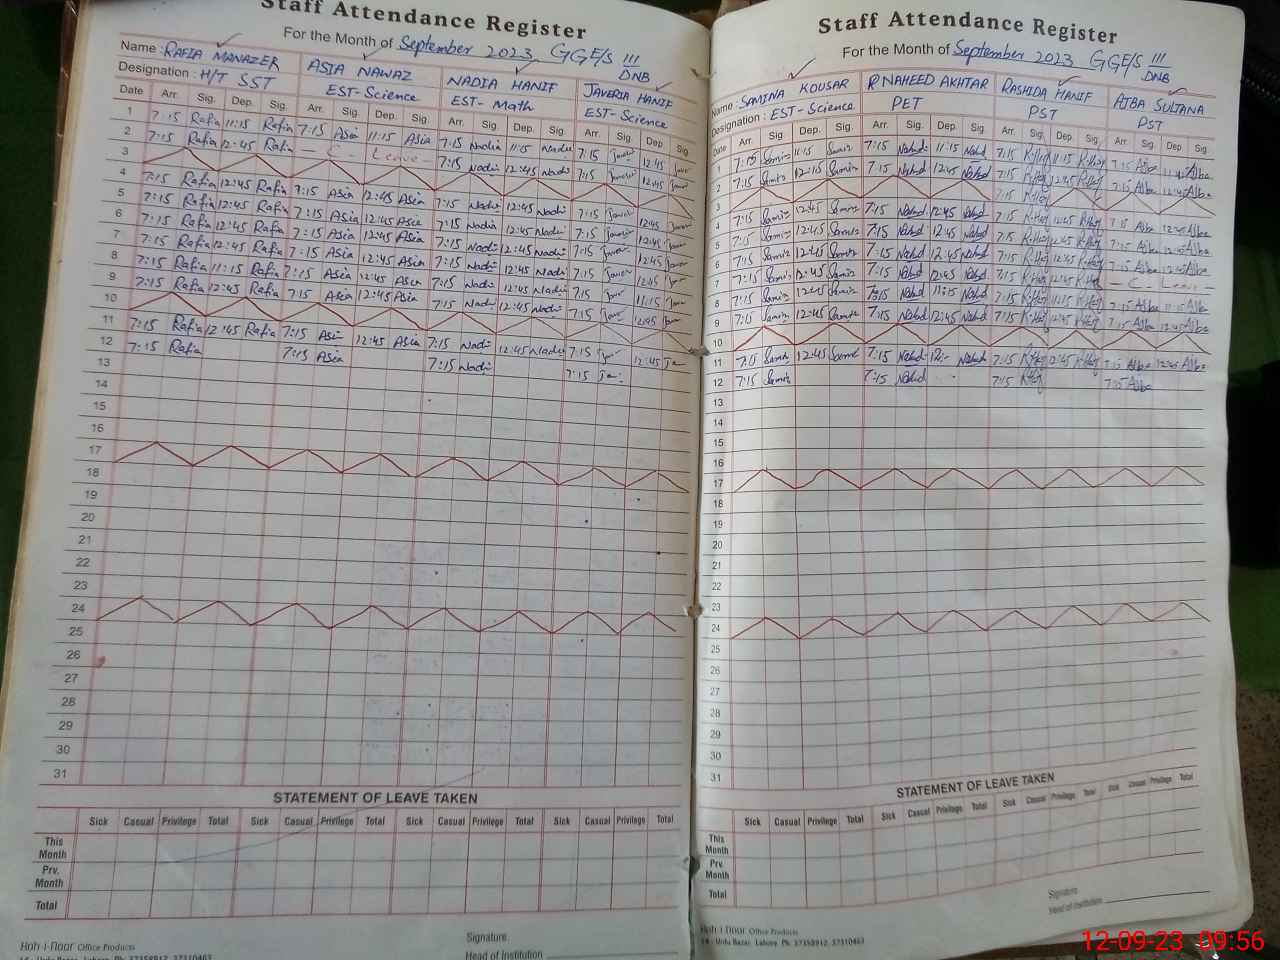 Staff Attendance Register
For the Month of September 2023 GGE/S 111/DNB
Name : RAFIA MANAZER ASIA NAWAZ NADIA HANIF JAVERIA HANIF
Designation : H/T SST EST-Science EST-Math EST-Science
Date Arr. Sig. Dep. Sig. Arr. Sig. Dep. Sig. Arr. Sig. Dep. Sig. Arr. Sig. Dep. Sig.
1 7:15 Rafia 11:15 Rafia 7:15 Asia 11:15 Asia 7:15 Nadi 11:15 Nadi 7:15 12:45
2 7:15 Rafia 12:45 Rafia — C — Leave — 7:15 Nadi 12:45 Nadi 7:15 12:45
3
4 7:15 Rafia 12:45 Rafia 7:15 Asia 12:45 Asia 7:15 Nadi 12:45 Nadi 7:15 12:45
5 7:15 Rafia 12:45 Rafia 7:15 Asia 12:45 Asia 7:15 Nadi 12:45 Nadi 7:15 12:45
6 7:15 Rafia 12:45 Rafia 7:15 Asia 12:45 Asia 7:15 Nadi 12:45 Nadi 7:15 12:45
7 7:15 Rafia 12:45 Rafia 7:15 Asia 12:45 Asia 7:15 Nadi 12:45 Nadi 7:15 12:45
8 7:15 Rafia 11:15 Rafia 7:15 Asia 12:45 Asia 7:15 Nadi 12:45 Nadi 7:15 11:15
9 7:15 Rafia 12:45 Rafia 7:15 Asia 12:45 Asia 7:15 Nadi 12:45 Nadi 7:15 12:45
10
11 7:15 Rafia 12:45 Rafia 7:15 Asia 12:45 Asia 7:15 Nadi 12:45 Nadi 7:15 12:45
12 7:15 Rafia 7:15 Asia 7:15 Nadi 7:15
13
14
15
16
17
18
19
20
21
22
23
24
25
26
27
28
29
30
31
STATEMENT OF LEAVE TAKEN
Sick Casual Privilege Total Sick Casual Privilege Total Sick Casual Privilege Total Sick Casual Privilege Total
This Month
Prv. Month
Total
Signature
Head of Institution
Koh-i-Noor Office Products
14 - Urdu Bazar, Lahore. Ph: 37358912, 37310463
Staff Attendance Register
For the Month of September 2023 GGE/S 111/DNB
Name : SAMINA KOUSAR R NAHEED AKHTAR RASHIDA HANIF AIBA SULTANA
Designation : EST-Science PET PST PST
Date Arr. Sig. Dep. Sig. Arr. Sig. Dep. Sig. Arr. Sig. Dep. Sig. Arr. Sig. Dep. Sig.
1 7:15 Samiz 11:15 Samiz 7:15 Nahd 11:15 Nahd 7:15 11:15 7:15 Aiba Aiba
2 7:15 Samiz Samiz 7:15 Nahd 12:45 Nahd 7:15 12:45 7:15 Aiba 12:45 Aiba
3
4 7:15 Samiz 12:45 Samiz 7:15 Nahd 12:45 Nahd 7:15 12:45 7:15 Aiba 12:45 Aiba
5 7:15 Samiz 12:45 Samiz 7:15 Nahd 12:45 Nahd 7:15 12:45 7:15 Aiba 12:45 Aiba
6 7:15 Samiz 12:45 Samiz 7:15 Nahd 12:45 Nahd 7:15 12:45 7:15 Aiba 12:45 Aiba
7 7:15 Samiz 12:45 Samiz 7:15 Nahd 12:45 Nahd 7:15 12:45 — C — Leave —
8 7:15 Samiz 12:45 Samiz Nahd 11:15 Nahd 7:15 11:15 7:15 Aiba 11:15 Aiba
9 7:15 Samiz 12:45 Samiz 7:15 Nahd 12:45 Nahd 7:15 12:45 7:15 Aiba 12:45 Aiba
10
11 Samiz 12:45 7:15 Nahd Nahd 7:15 12:45 7:15 Aiba 12:45 Aiba
12 7:15 Samiz 7:15 Nahd 7:15 7:15 Aiba
13
14
15
16
17
18
19
20
21
22
23
24
25
26
27
28
29
30
31
STATEMENT OF LEAVE TAKEN
Sick Casual Privilege Total Sick Casual Privilege Total Sick Casual Privilege Total Sick Casual Privilege Total
This Month
Prv. Month
Total
Signature
Head of Institution
Koh-i-Noor Office Products
14 - Urdu Bazar, Lahore. Ph: 37358912, 37310463
12-09-23 09:56